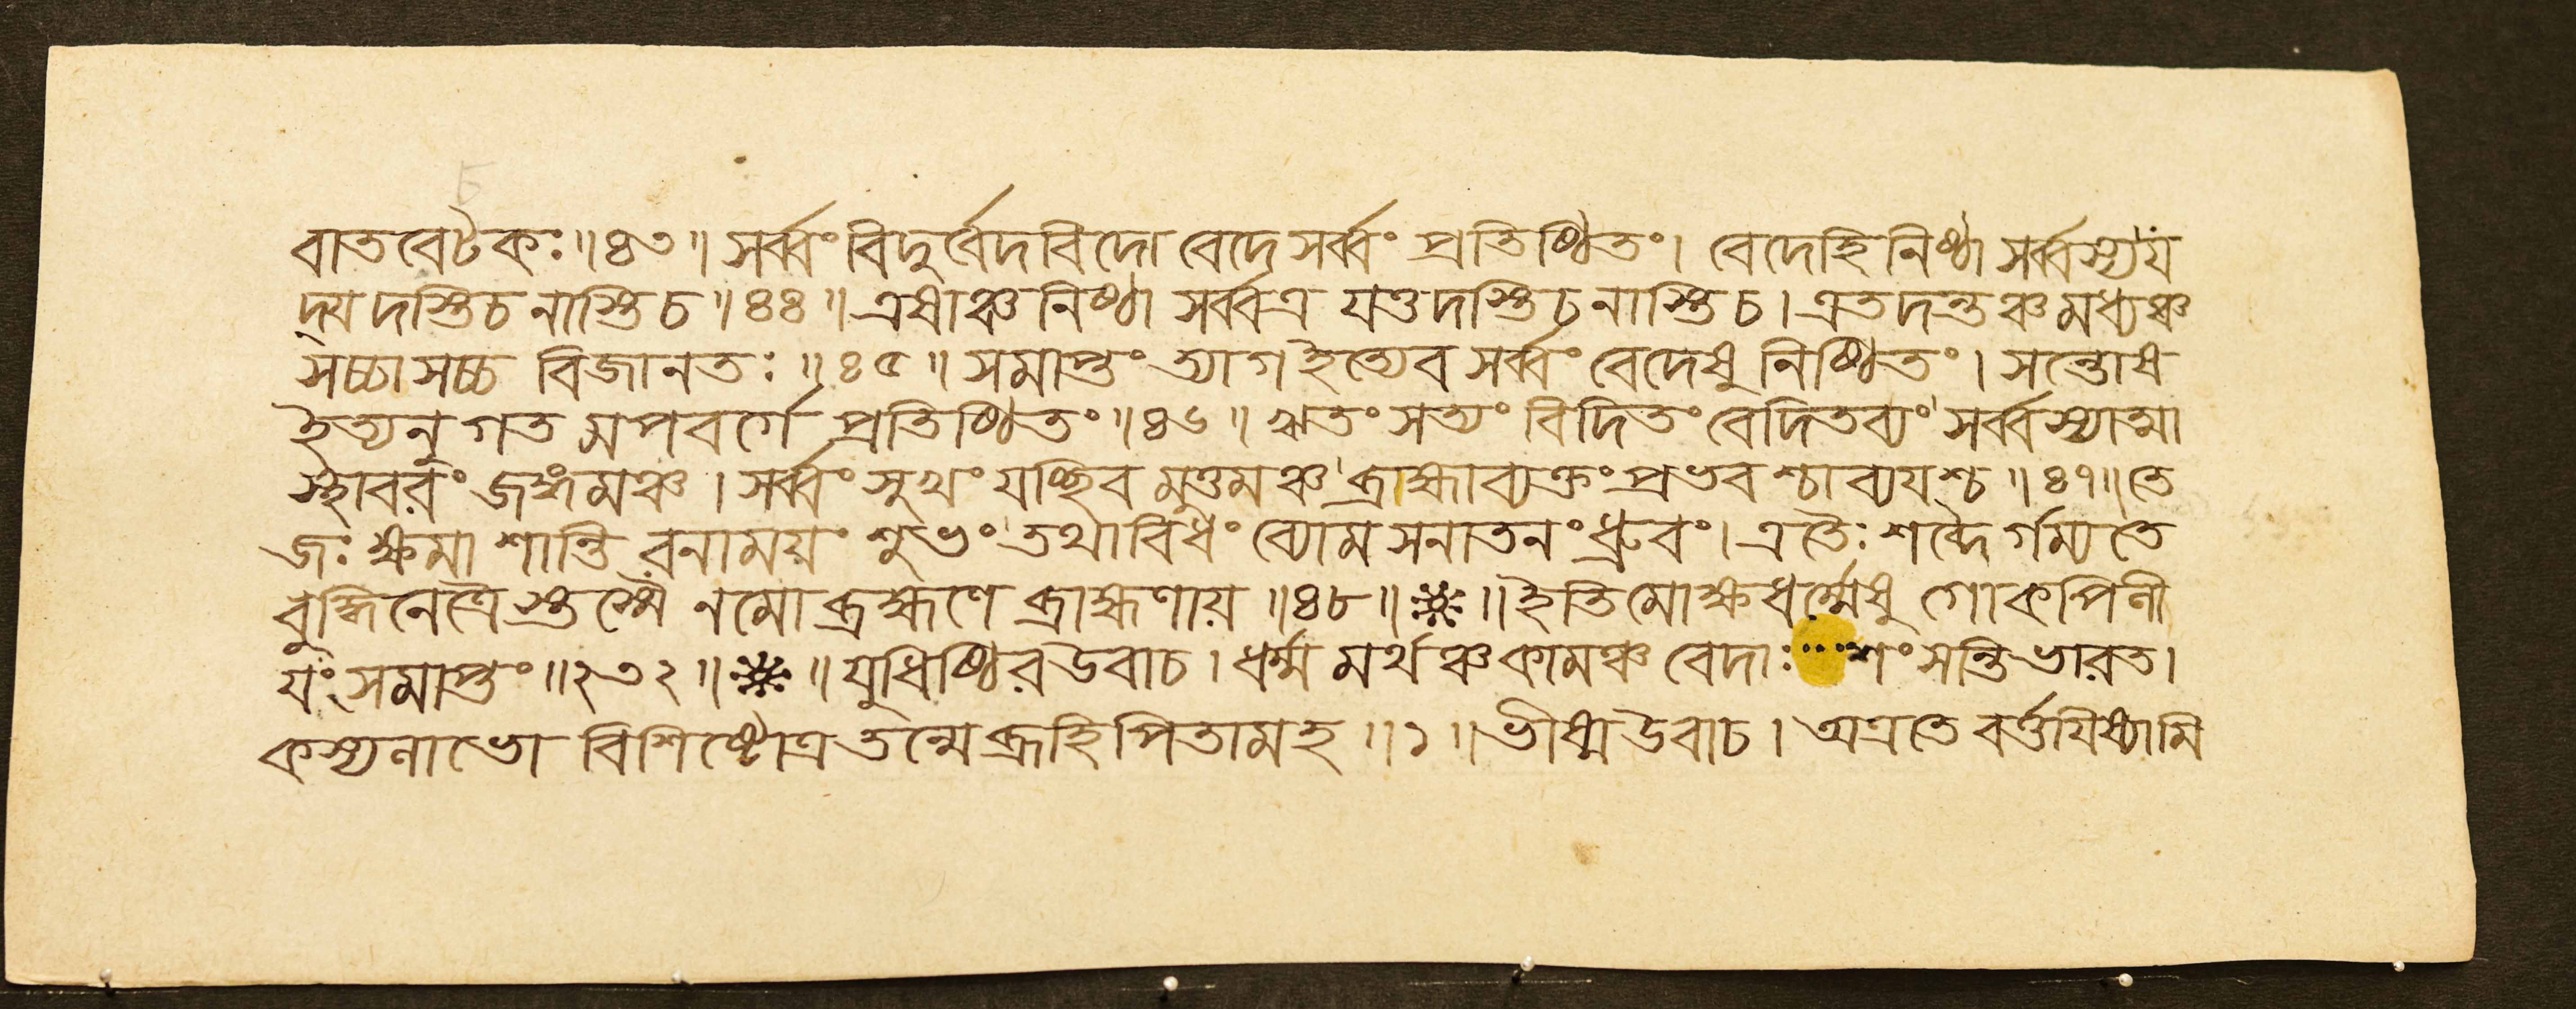 বাতবেটকঃ॥৪৩॥সর্ব্বং বিদুর্বেদবিদো বেদে সর্ব্বং প্রতিষ্ঠিতং। বেদেহি নিষ্ঠা সর্ব্বস্য য
দ্য দস্তিচ নাস্তিচ॥৪৪॥এষাঞ্চ নিষ্ঠা সর্ব্বত্র যত্তদস্তি চ নাস্তি চ। এতদন্তঞ্চ মধ্যঞ্চ
সচ্চাসচ্চ বিজানতঃ॥৪৫॥সমাপ্তং ত্যাগ ইত্যেব সর্ব্বং বেদেষু নিষ্ঠিতং। সন্তোষ
ইত্যনুগত মপবর্গে প্রতিষ্ঠিতং॥৪৬॥ঋতং সত্যং বিদিতং বেদিতব্যং সর্ব্বস্যাত্মা
স্থাবরং জঙ্গমঞ্চ। সর্ব্বং সুখং যচ্ছিব মুত্তমঞ্চ ব্রাহ্মাব্যক্তং প্রভব শ্চাব্যযশ্চ॥৪৭॥তে
জঃ ক্ষমা শান্তি রনাময়ং শুভং তথাবিধং ব্যোম সনাতনং ধ্রুবং। এতৈঃ শব্দৈ র্গম্যতে
বুদ্ধিনেত্রৈ স্তস্মৈ নমো ব্রহ্মণে ব্রাহ্মণায়॥৪৮॥※॥ইতি মোক্ষধর্ম্মেষু গোকপিনী
যং সমাপ্তং॥২৩২॥※॥যুধিষ্ঠির উবাচ। ধর্ম্ম মর্থঞ্চ কামঞ্চ বেদাঃ···শংসন্তি ভারত।
কস্য নাভো বিশিষ্টোত্র তন্মে ব্রূহি পিতামহ॥১॥ভীষ্ম উবাচ। অত্রতে বর্ত্তযিষ্যামি